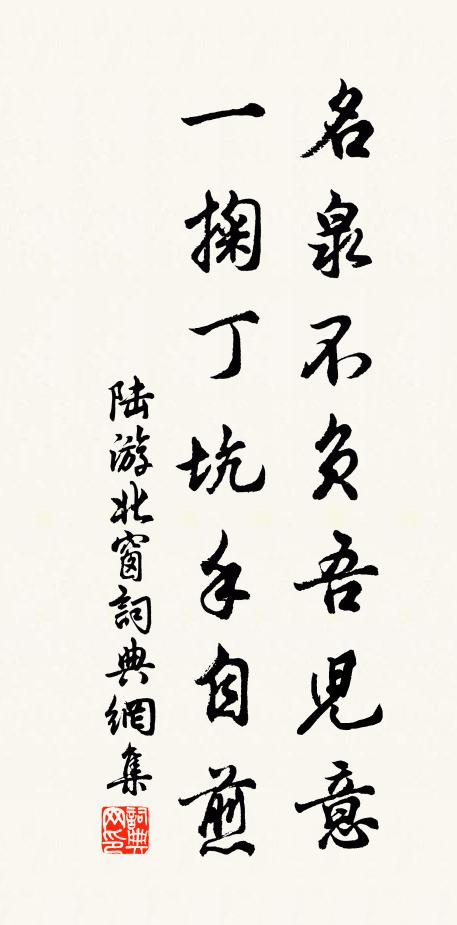 名泉不負吾兒意
一掬丁坑手自煎
陸游北窗詞典網集
詞典网印